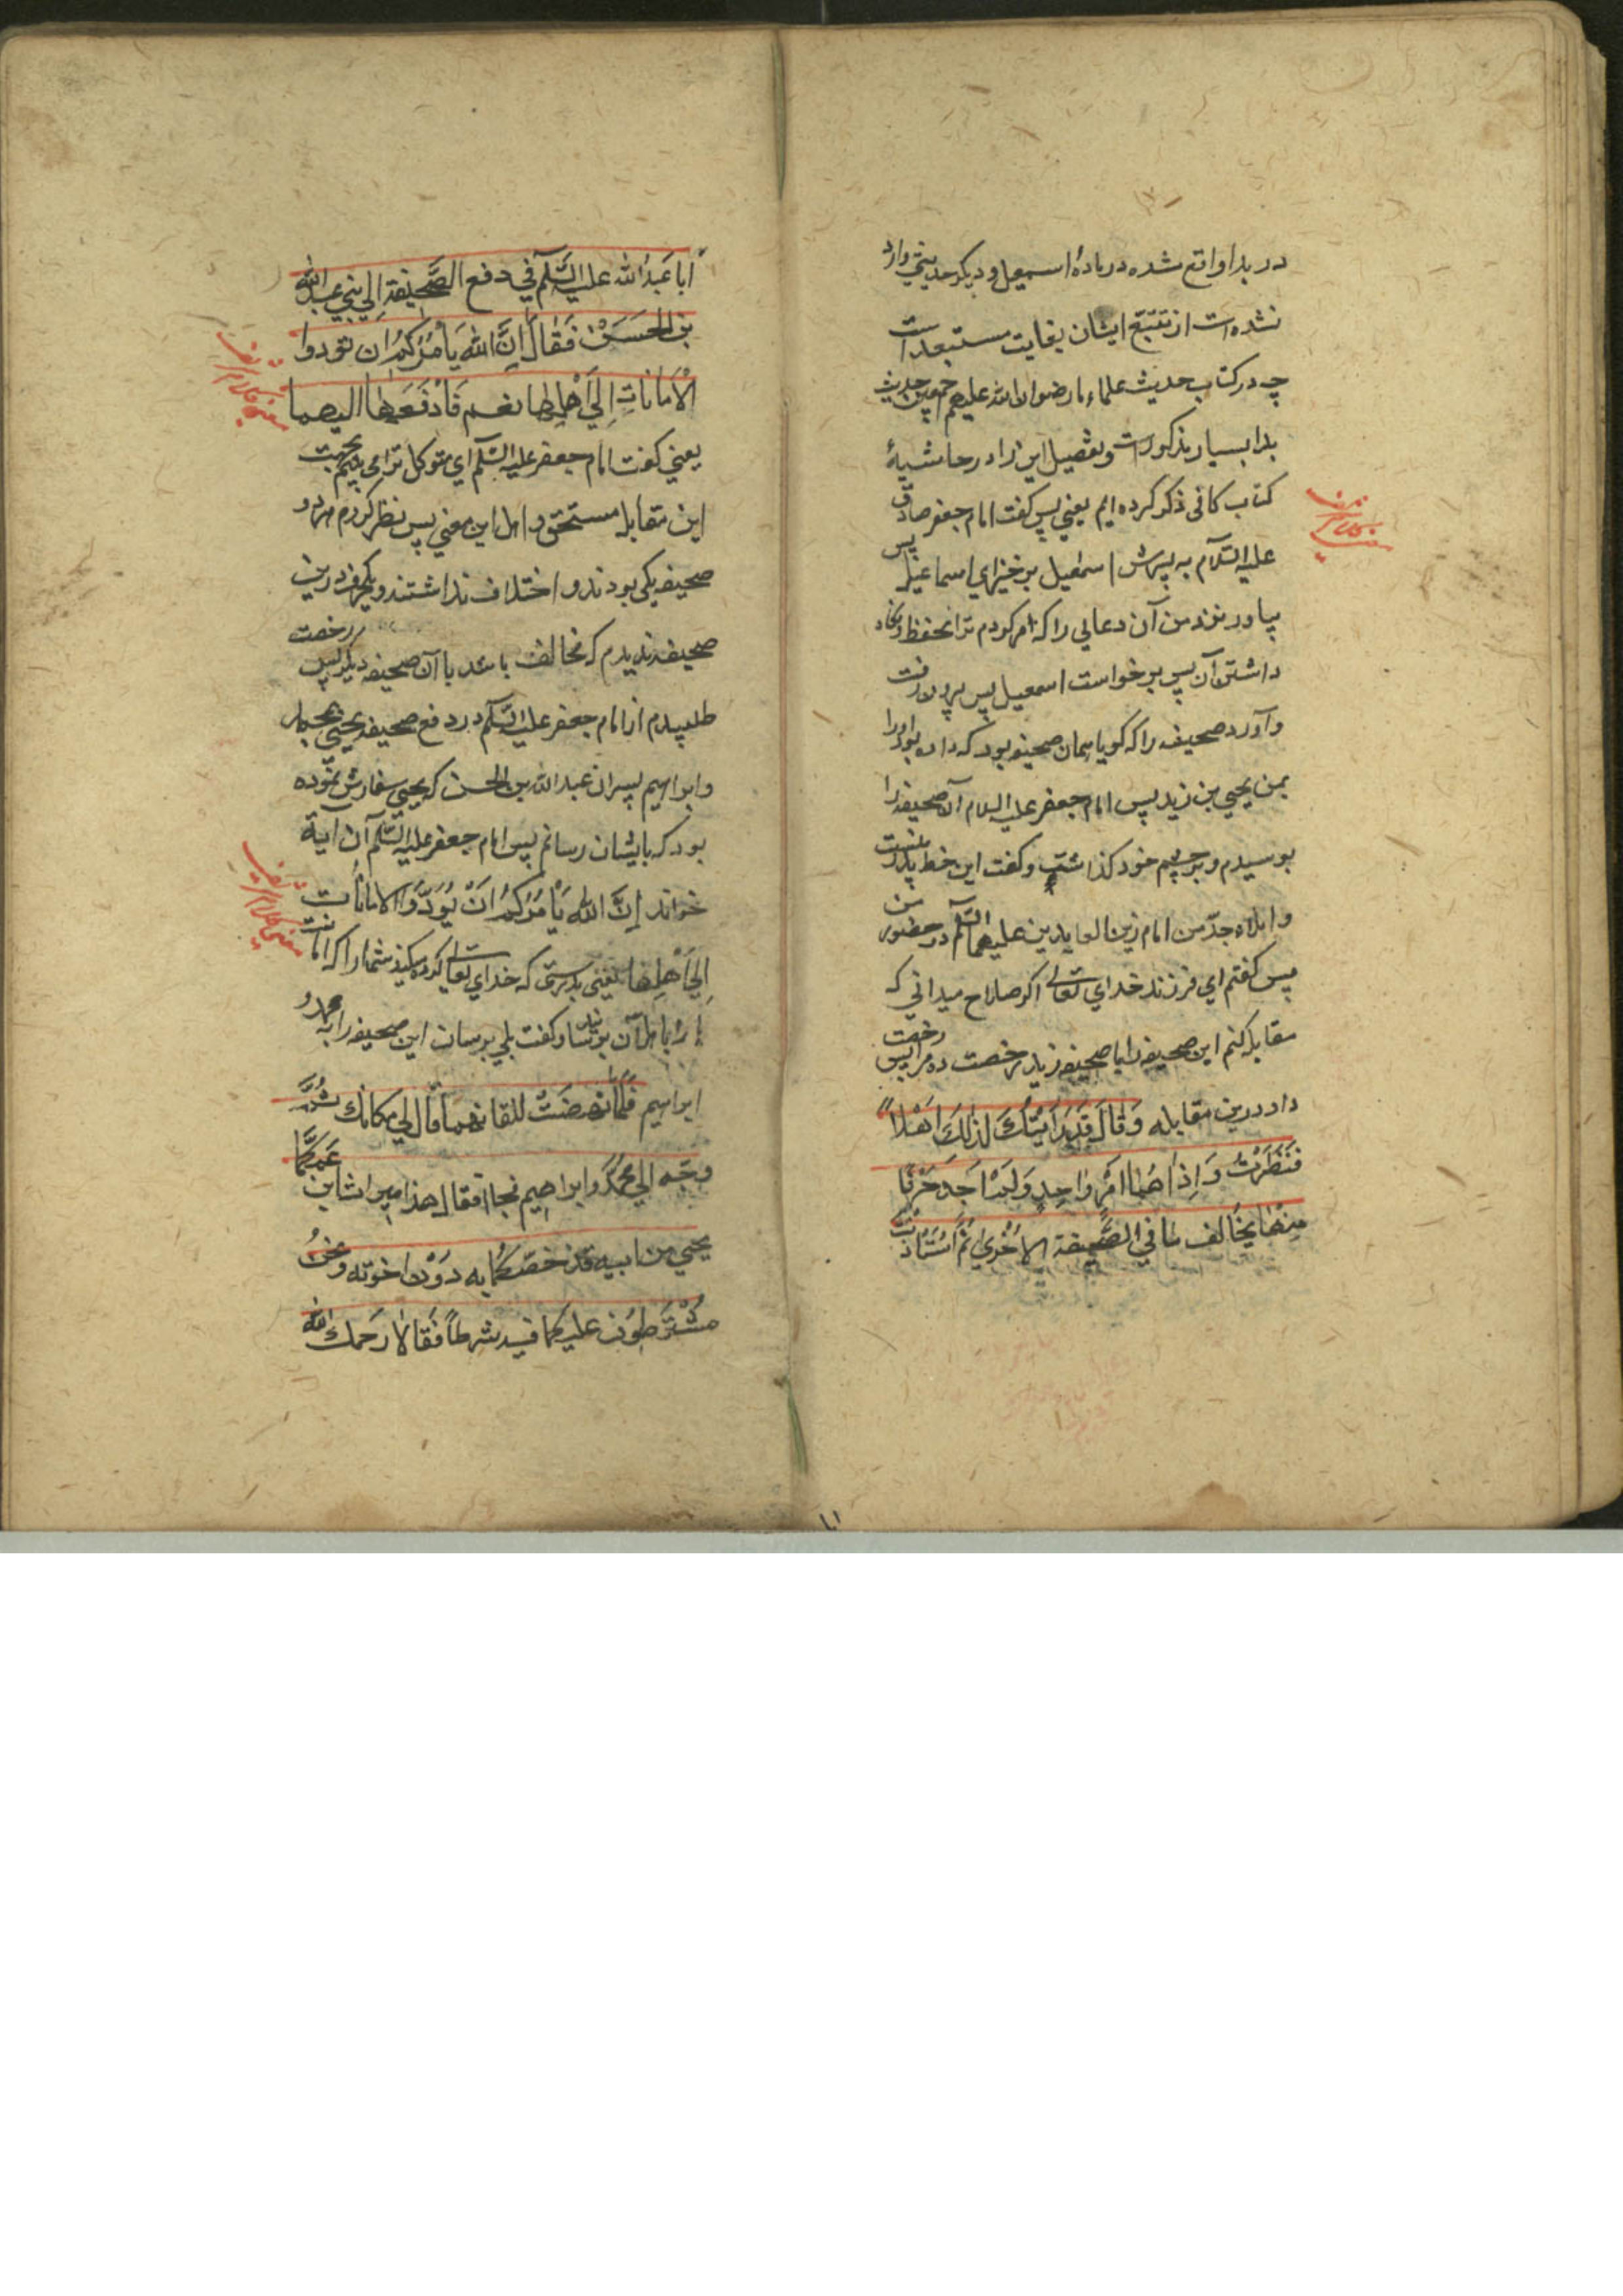 در بدا واقع شده در مادهٔ اسمعیل و دیکر حدیثی وارد
نشده است از تتبّع ایشان بغایت مستبعد است
چه در کتاب حدیث علماء ما رضوان الله علیهم همچین حدیث
بدا بسیار مذکور است و تفصیل این را در حاشیهٔ
کتاب کافی ذکر کرده ایم یعنی پس کفت امام جعفر صادق
علیه السّلام به پسرش اسمعیل برخیز ای اسماعیل پس
بیاور نزد من آن دعایی را که امر کردم ترا بحفظ و نکاه
داشتن آن پس برخواست اسمعیل پس بیرون رفت
و آورد صحیفه را که کویا همان صحیفه بود که داده بود اورا
بمن یحیی بن زید پس امام جعفر علیه السلام آن صحیفه را
بوسیدم و بر چشم خود کذاشت و کفت این خط پدرمنست
و املاء جدّ من امام زین العابدین علیهما السّلم در حضور من
پس کفتم ای فرزند خدای تعالی اکر صلاح میدانی که
مقابله کنم این صحیفه را با صحیفه زید رخصت ده مرا پس رخصت
داد درین مقابله وَقالَ قَد رَاَیتُکَ لذلِکَ اَهْلاً
فَنَظَرْتُ وَاِذا هُما امْرٌ واحِدٍ وَلَمْ اَجِد حَرْفًا
مِنْها یُخالف لما فی الصَّحیفة الاُخْری ثمَّ اسْتَاْذَنْتُ
معنی کلام شریف
اَبا عَبدُ الله علیه السَّلَم فی دفع الصَّحیفَة اِلی بَنی عبد الله
بن الحَسَن فَقالَ اِنَّ الله یَأمُرُکُمْ ان تؤدوا
الْاَماناتِ اِلی اَهْلِها نعم فَادْفَعْها الیهما
یعنی کفت امام جعفر علیه السّلم ای متوکل ترا می بینم بجهت
این مقابله مستحق و اهل این معنی پس نظر کردم هردو
صحیفه یکی بودند و اختلاف نداشتند و یکحرف درین
صحیفه ندیدم که مخالف باشد با آن صحیفه دیکر پس رخصت
طلبیدم از امام جعفر علیه السَّلم در دفع صحیفه یحیی بمحمد
و ابراهیم پسران عبد الله بن الحسن که یحیی سفارش نموده
بود که بایشان رسانم پس امام جعفر علیه السّلم آن آیة
خواند اِنَّ الله یَأمُرُکُمْ اَنْ تُؤَدّوُا الاماناٰت
اِلی اَهْلِها یعنی بدرستی که خدای تعالی کرده میکند شما را که امانت
را باهل آن برسانید و کفت بلی برسان این صحیفه را به محمد و
ابراهیم فلَمّا نهضتُ للقائهما قال لی مکانك ثُمَّ
وجّه الی مُحمّدٍ وابراهیم فجاءا فقال هذا میراث ابن عَمِّکُما
یحیی من ابیه قد خصّکُما به دوُنَ اخوته ونَحنُ
مُشْتَرِطوُن علیکما فیه شرطاً فَقالا رَحمك الله
معنی کلام شریف
معنی کلام شریف